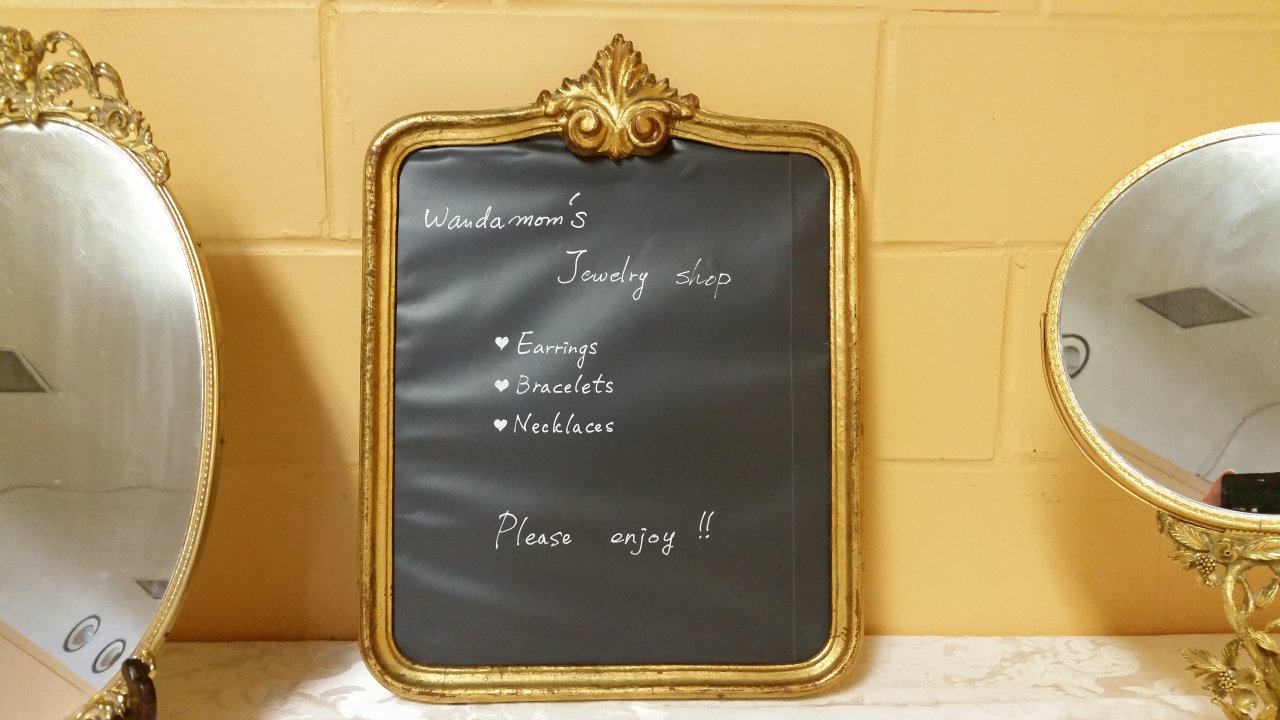 Wandamom's
Jewelry shop
♥ Earrings
♥ Bracelets
♥ Necklaces
Please enjoy !!